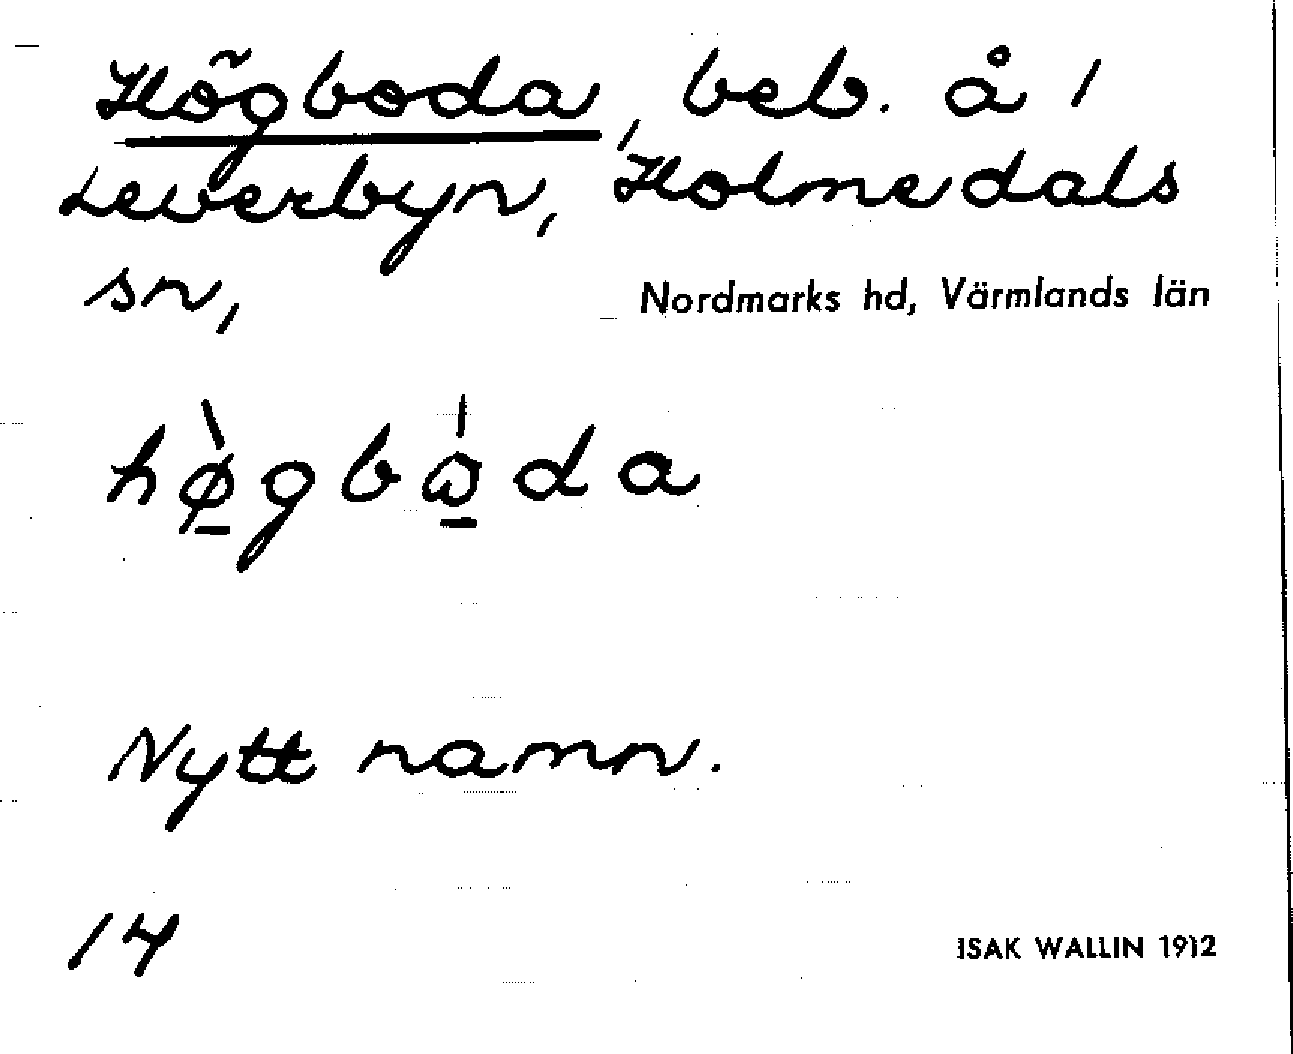 Högboda, beb. å 1
Leverbyn, Holmedals
sn, Nordmarks hd, Värmlands län
hø̲̀gbώ̲da
Nytt namn.
14
ISAK WALLIN 1912